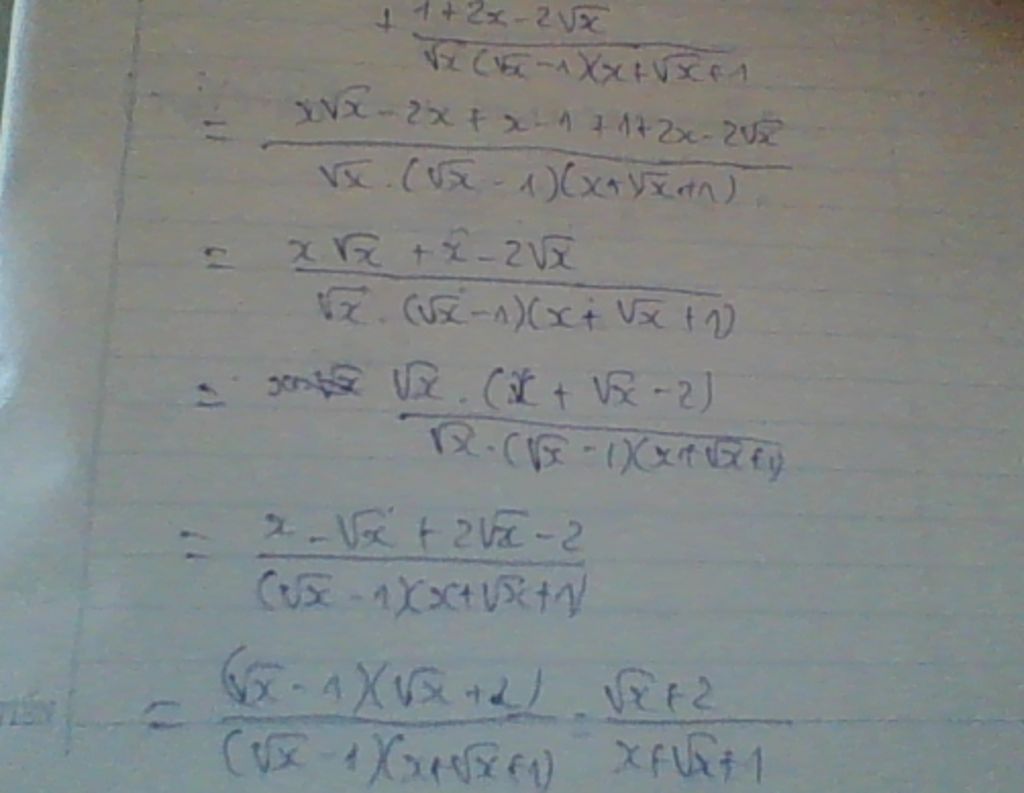 + (1+2x-2√x)/(√x(√x-1)(x+√x+1
= (x√x-2x+x-1+1+2x-2√x)/(√x.(√x-1)(x+√x+1))
= (x√x+x-2√x)/(√x.(√x-1)(x+√x+1))
= (√x.(x+√x-2))/(√x.(√x-1)(x+√x+1))
= (x-√x+2√x-2)/((√x-1)(x+√x+1))
= ((√x-1)(√x+2))/((√x-1)(x+√x+1)) = (√x+2)/(x+√x+1)